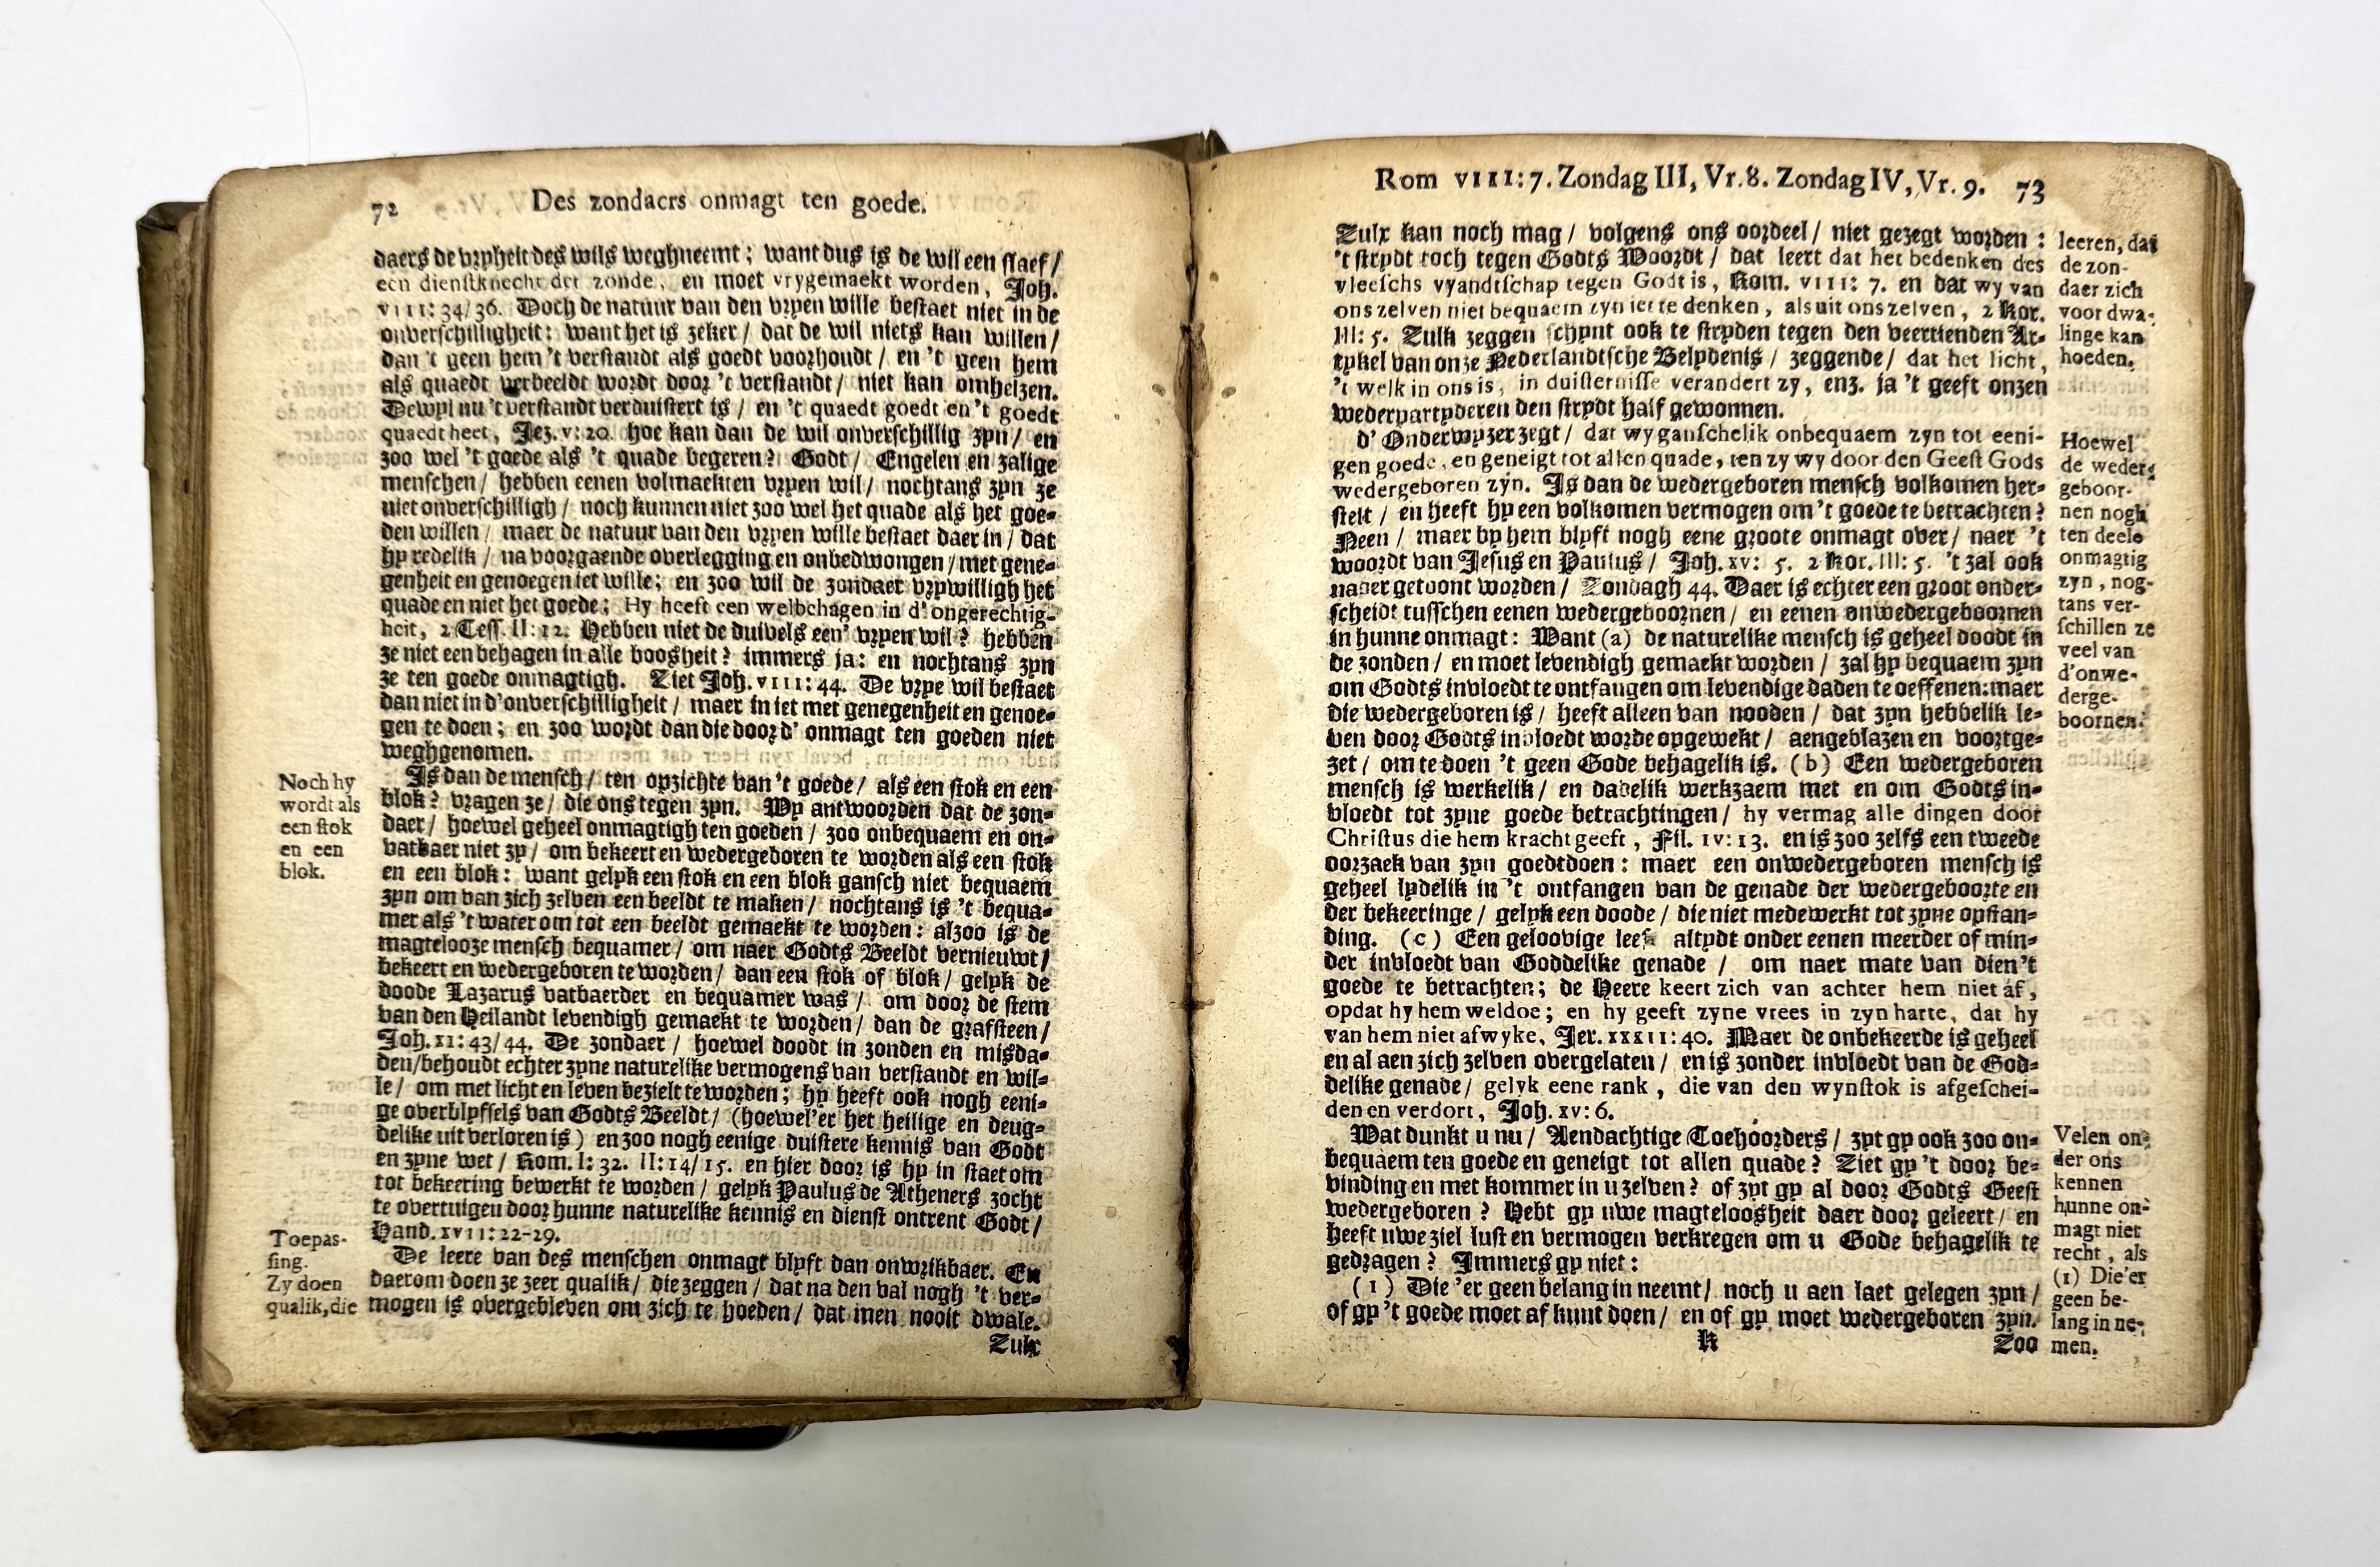 72 Des zondaers onmagt ten goede.
daers de vryheit des wils weghneemt; want dus is de wil een slaef/
een dienstknecht der zonde, en moet vrygemaekt worden, Joh.
VIII: 34/36. Doch de natuur van den vryen wille bestaet niet in de
onverschilligheit: want het is zeker/ dat de wil niets kan willen/
dan 't geen hem 't verstandt als goedt voorhoudt/ en 't geen hem
als quaedt verbeeldt wordt door 't verstandt/ niet kan omhelzen.
Dewyl nu 't verstandt verduistert is/ en 't quaedt goedt en 't goedt
quaedt heet, Jez. V: 20. hoe kan dan de wil onverschillig zyn/ en
zoo wel 't goede als 't quade begeren? Godt/ Engelen en zalige
menschen/ hebben eenen volmaekten vryen wil/ nochtans zyn ze
niet onverschilligh/ noch kunnen niet zoo wel het quade als het goe-
den willen/ maer de natuur van den vryen wille bestaet daer in/ dat
hy redelik/ na voorgaende overlegging en onbedwongen/ met gene-
genheit en genoegen iet wille; en zoo wil de zondaer vrywilligh het
quade en niet het goede; Hy heeft een welbehagen in d'ongerechtig-
heit, 2 Tess. II: 12. Hebben niet de duivels een' vryen wil? hebben
ze niet een behagen in alle boosheit? immers ja: en nochtans zyn
ze ten goede onmagtigh. Ziet Joh. VIII: 44. De vrye wil bestaet
dan niet in d'onverschilligheit/ maer in iet met genegenheit en genoe-
gen te doen; en zoo wordt dan die door d' onmagt ten goeden niet
weghgenomen.
Noch hy
wordt als
een stok
en een
blok.
Is dan de mensch/ ten opzichte van 't goede/ als een stok en een
blok? vragen ze/ die ons tegen zyn. Wy antwoorden dat de zon-
daer/ hoewel geheel onmagtigh ten goeden/ zoo onbequaem en on-
vatbaer niet zy/ om bekeert en wedergeboren te worden als een stok
en een blok: want gelyk een stok en een blok gansch niet bequaem
zyn om van zich zelven een beeldt te maken/ nochtans is 't bequa-
mer als 't water om tot een beeldt gemaekt te worden: alzoo is de
magtelooze mensch bequamer/ om naer Godts Beeldt vernieuwt/
bekeert en wedergeboren te worden/ dan een stok of blok/ gelyk de
doode Lazarus vatbaerder en bequamer was/ om door de stem
van den Heilandt levendigh gemaekt te worden/ dan de grafsteen/
Joh. XI: 43/44. De zondaer/ hoewel doodt in zonden en misda-
den/ behoudt echter zyne naturelike vermogens van verstandt en wil-
le/ om met licht en leven bezielt te worden; hy heeft ook nogh eeni-
ge overblyfsels van Godts Beeldt/ (hoewel 'er het heilige en deug-
delike uit verloren is) en zoo nogh eenige duistere kennis van Godt
en zyne wet/ Rom. I: 32. II: 14/15. en hier door is hy in staet om
tot bekeering bewerkt te worden/ gelyk Paulus de Atheners zocht
te overtuigen door hunne naturelike kennis en dienst ontrent Godt/
Hand. XVII: 22-29.
Toepas-
sing.
Zy doen
qualik, die
De leere van des menschen onmagt blyft dan onwrikbaer. En
daerom doen ze zeer qualik/ die zeggen/ dat na den val nogh 't ver-
mogen is overgebleven om zich te hoeden/ dat men nooit dwale.
Zulx
Rom VIII: 7. Zondag III, Vr. 8. Zondag IV, Vr. 9. 73
Zulx kan noch mag/ volgens ons oordeel/ niet gezegt worden:
't strydt toch tegen Godts Woordt/ dat leert dat het bedenken des
vleeschs vyandtschap tegen Godt is, Rom. VIII: 7. en dat wy van
ons zelven niet bequaem zyn iet te denken, als uit ons zelven, 2 Kor.
III: 5. Zulk zeggen schynt ook te stryden tegen den veertienden Ar-
tykel van onze Nederlandtsche Belydenis/ zeggende/ dat het licht,
't welk in ons is, in duisternisse verandert zy, enz. ja 't geeft onzen
wederpartyderen den strydt half gewonnen.
leeren, dat
de zon-
daer zich
voor dwa-
linge kan
hoeden.
d' Onderwyzer zegt/ dat wy ganschelik onbequaem zyn tot eeni-
gen goede, en geneigt tot allen quade, ten zy wy door den Geest Gods
wedergeboren zyn. Is dan de wedergeboren mensch volkomen her-
stelt/ en heeft hy een volkomen vermogen om 't goede te betrachten?
Neen/ maer by hem blyft nogh eene groote onmagt over/ naer 't
woordt van Jesus en Paulus/ Joh. XV: 5. 2 Kor. III: 5. 't zal ook
nader getoont worden/ Zondagh 44. Daer is echter een groot onder-
scheidt tusschen eenen wedergeboornen/ en eenen onwedergeboornen
in hunne onmagt: Want (a) de naturelike mensch is geheel doodt in
de zonden/ en moet levendigh gemaekt worden/ zal hy bequaem zyn
om Godts invloedt te ontfangen om levendige daden te oeffenen: maer
die wedergeboren is/ heeft alleen van nooden/ dat zyn hebbelik le-
ven door Godts invloedt worde opgewekt/ aengeblazen en voortge-
zet/ om te doen 't geen Gode behagelik is. (b) Een wedergeboren
mensch is werkelik/ en dadelik werkzaem met en om Godts in-
vloedt tot zyne goede betrachtingen/ hy vermag alle dingen door
Christus die hem kracht geeft, Fil. IV: 13. en is zoo zelfs een tweede
oorzaek van zyn goedtdoen: maer een onwedergeboren mensch is
geheel lydelik in 't ontfangen van de genade der wedergeboorte en
der bekeeringe/ gelyk een doode/ die niet medewerkt tot zyne opstan-
ding. (c) Een geloovige leeft altydt onder eenen meerder of min-
der invloedt van Goddelike genade/ om naer mate van dien 't
goede te betrachten; de Heere keert zich van achter hem niet af,
opdat hy hem weldoe; en hy geeft zyne vrees in zyn harte, dat hy
van hem niet afwyke, Jer. XXXII: 40. Maer de onbekeerde is geheel
en al aen zich zelven overgelaten/ en is zonder invloedt van de God-
delike genade/ gelyk eene rank, die van den wynstok is afgeschei-
den en verdort, Joh. XV: 6.
Hoewel
de weder-
geboor-
nen nogh
ten deele
onmagtig
zyn, nog-
tans ver-
schillen ze
veel van
d'onwe-
derge-
boornen.
Wat dunkt u nu/ Aendachtige Toehoorders/ zyt gy ook zoo on-
bequaem ten goede en geneigt tot allen quade? Ziet gy 't door be-
vinding en met kommer in u zelven? of zyt gy al door Godts Geest
wedergeboren? Hebt gy uwe magteloosheit daer door geleert/ en
heeft uwe ziel lust en vermogen verkregen om u Gode behagelik te
gedragen? Immers gy niet:
(1) Die 'er geen belang in neemt/ noch u aen laet gelegen zyn/
of gy 't goede moet af kunt doen/ en of gy moet wedergeboren zyn.
Velen on-
der ons
kennen
hunne on-
magt niet
recht, als
(1) Die'er
geen be-
lang in ne-
men.
K Zoo